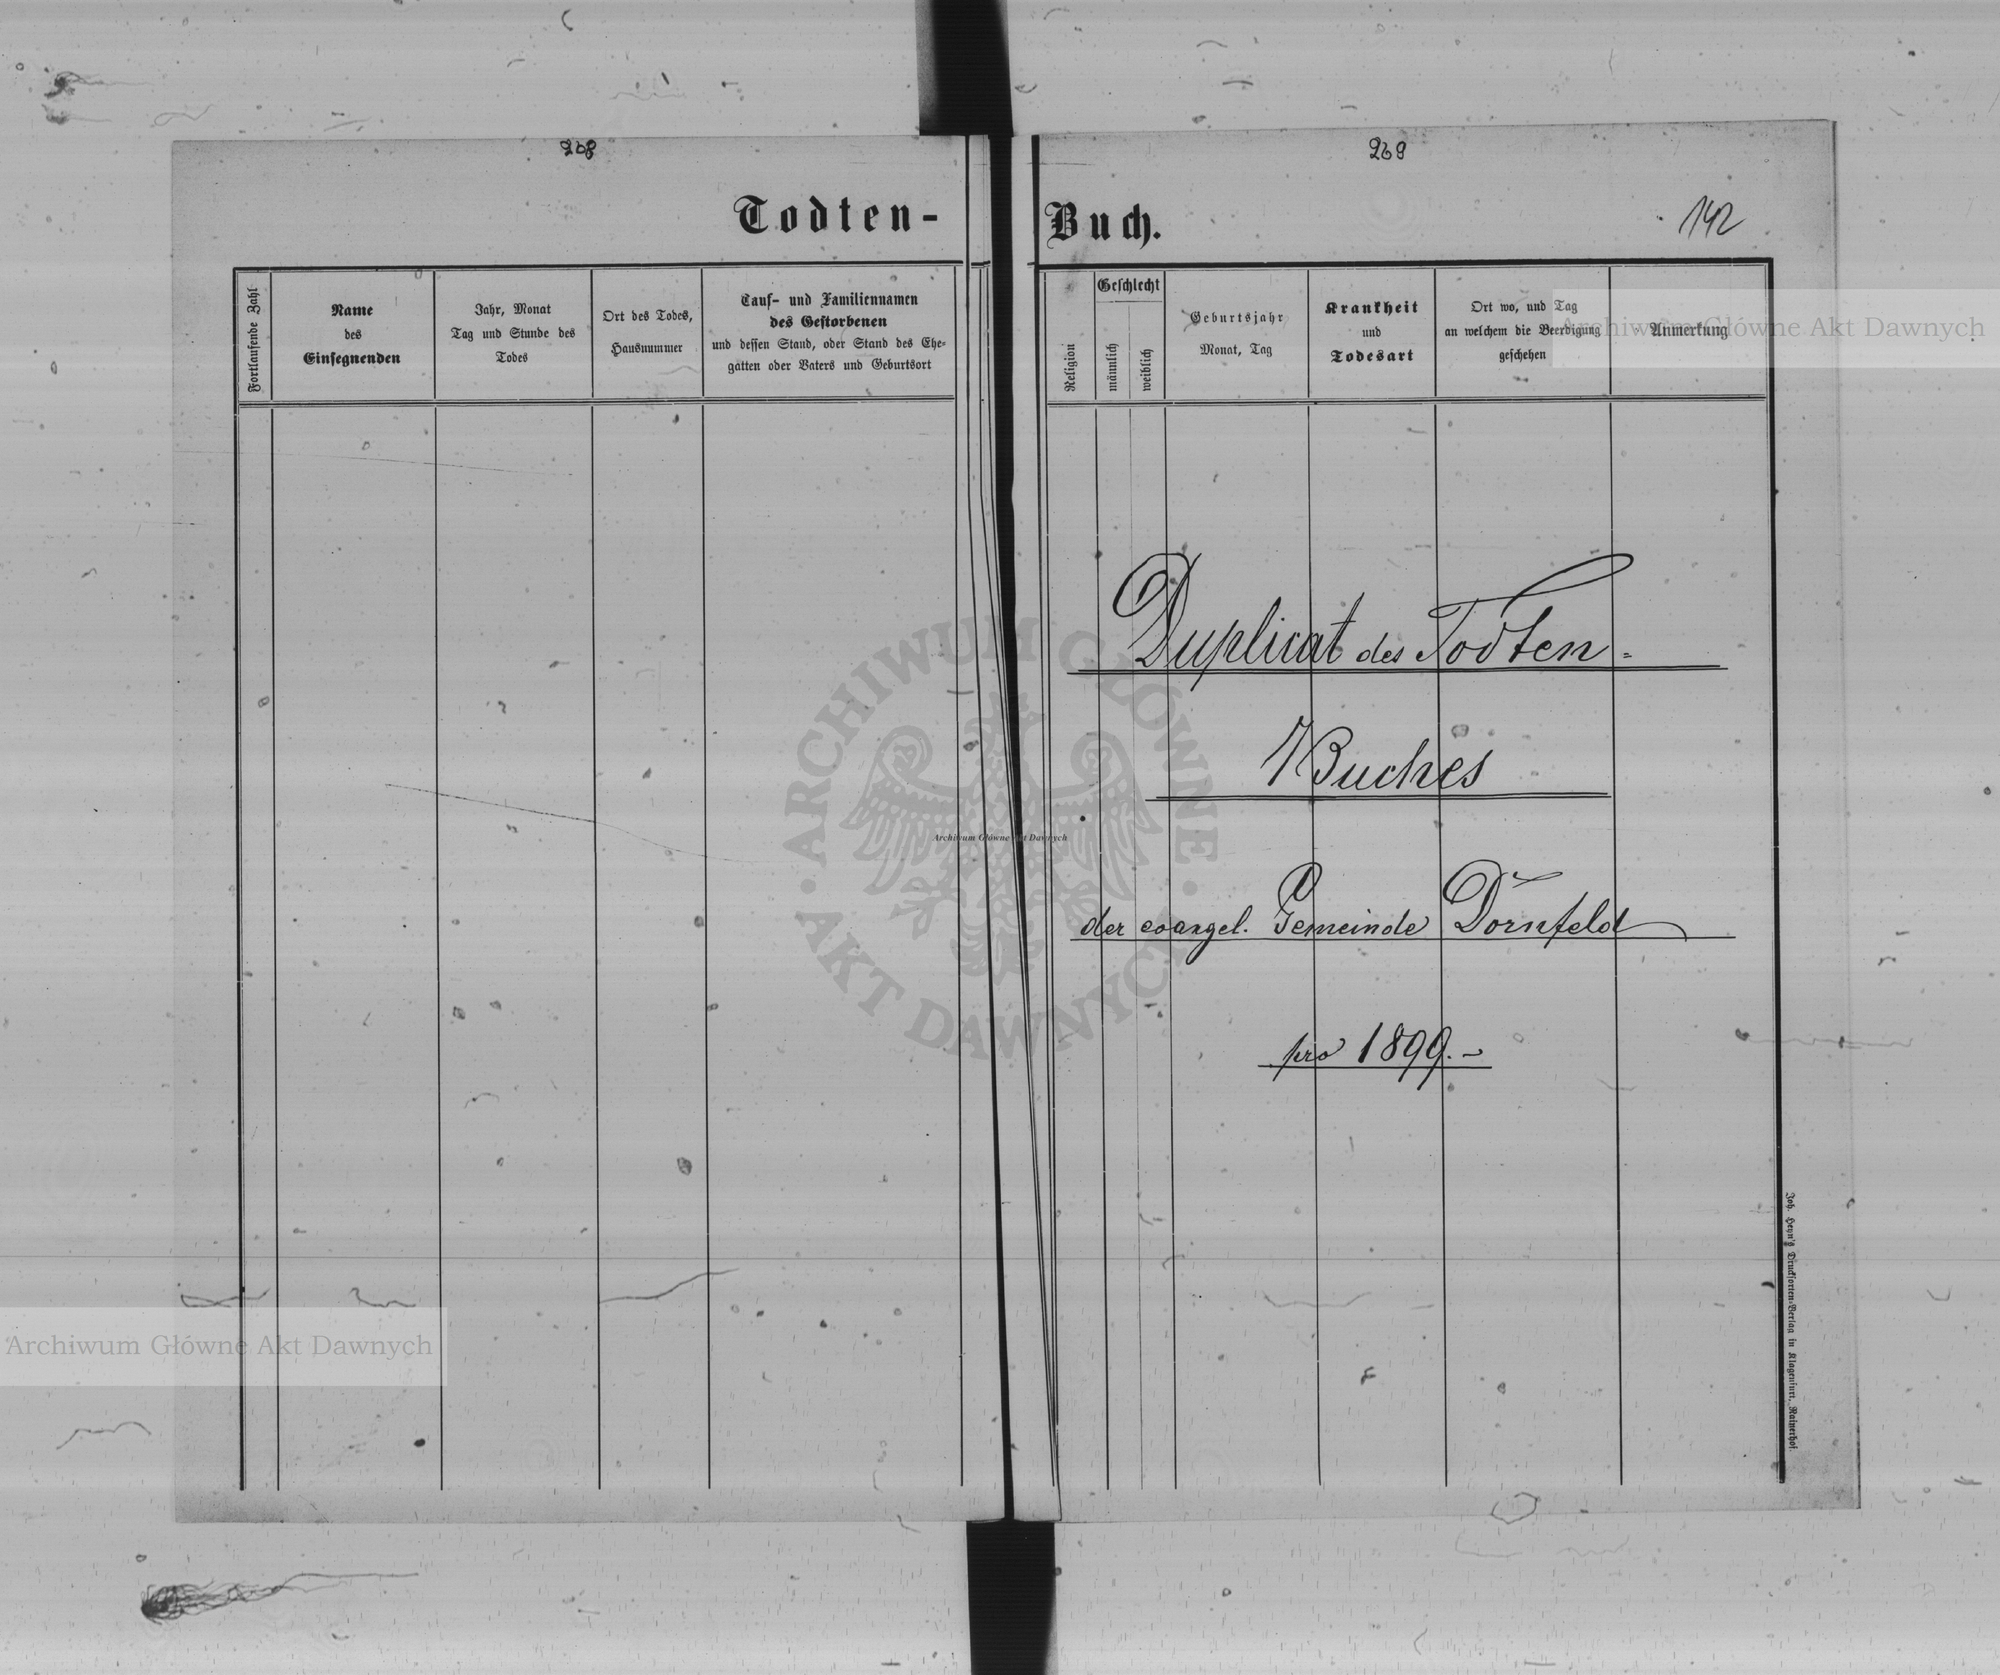 268
269
Todten-
Buch.
142
Fortlaufende Zahl
Name
des
Einsegnenden
Jahr, Monat
Tag und Stunde des
Todes
Ort des Todes,
Hausnummer
Tauf- und Familiennamen
des Gestorbenen
und dessen Stand, oder Stand des Ehe-
gatten oder Vaters und Geburtsort
Religion
Geschlecht
männlich
weiblich
Geburtsjahr
Monat, Tag
Krankheit
und
Todesart
Ort wo, und Tag
an welchem die Beerdigung
geschehen
Anmerkung
Archiwum Główne Akt Dawnych
Duplicat des Todten-
Buches
der evangel. Gemeinde Dornfeld
pro 1899.-
ARCHIWUM GŁÓWNE
AKT DAWNYCH
Archiwum Główne Akt Dawnych
Archiwum Główne Akt Dawnych
Joh. Heyn's Drucksorten-Verlag in Klagenfurt, Rainerhof.